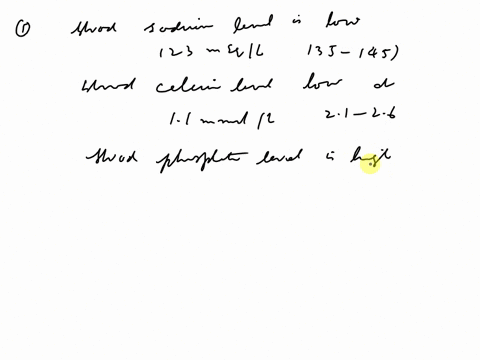 ① blood sodium level is low
123 mEq/L 135-145)
blood calcium level low at
1.1 mmol/L 2.1-2.6
blood phosphate level is high